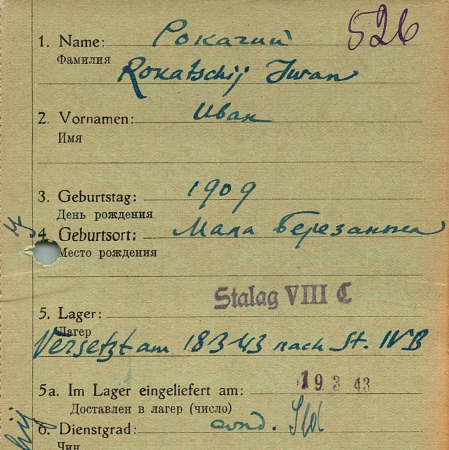 526
1. Name: Рокачий
Фамилия
Rokatschij Iwan
2. Vornamen: Иван
Имя
3. Geburtstag: 1909
День рождения
4. Geburtsort: Мала Березанка
Место рождения
5. Lager: Stalag VIII C
Лагер
Versetzt am 18 3 43 nach St. IV B
5a. Im Lager eingeliefert am: 19. 3. 43
Доставлен в лагер (число)
6. Dienstgrad: Sold
Чин